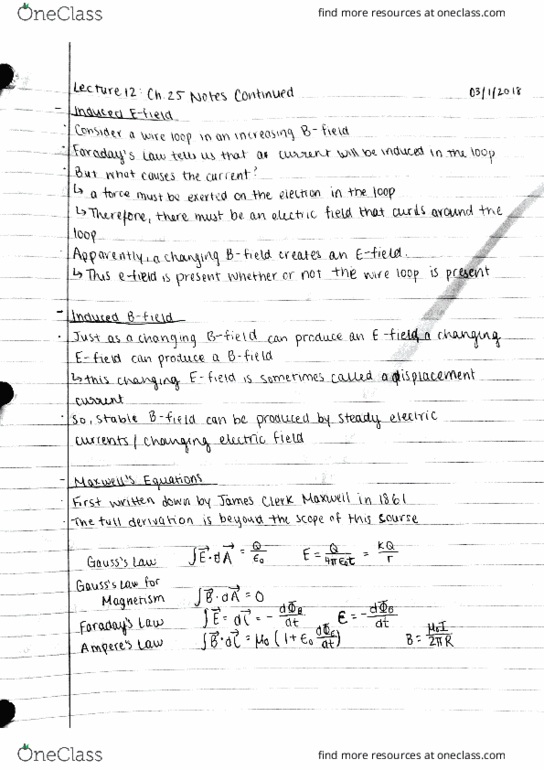 OneClass
find more resources at oneclass.com
Lecture 12: Ch.25 Notes Continued 03/1/2018
- Induced E-field
· Consider a wire loop in an increasing B-field
· Faraday's Law tells us that a current will be induced in the loop
· But what causes the current?
↳ a force must be exerted on the electron in the loop
↳ Therefore, there must be an electric field that curls around the
loop
· Apparently, a changing B-field creates an E-field.
↳ This e-field is present whether or not the wire loop is present
- Induced B-field
· Just as a changing B-field can produce an E-field, a changing
E-field can produce a B-field
↳ this changing E-field is sometimes called a displacement
current
· So, stable B-field can be produced by steady electric
currents / changing electric field
- Maxwell's Equations
· First written down by James Clerk Maxwell in 1861
· The full derivation is beyond the scope of this course
Gauss's Law ∫E⃗·dA⃗ = Q/ε₀ E = Q/4πε₀r = KQ/r
Gauss's Law for
Magnetism ∫B⃗·dA⃗ = 0
Faraday's Law ∫E⃗ = dl⃗ = - dΦ_B/dt ε = - dΦ_B/dt
Ampere's Law ∫B⃗·dl⃗ = μ₀ (I + ε₀ dΦ_E/dt) B = μ₀I/2πR
OneClass
find more resources at oneclass.com